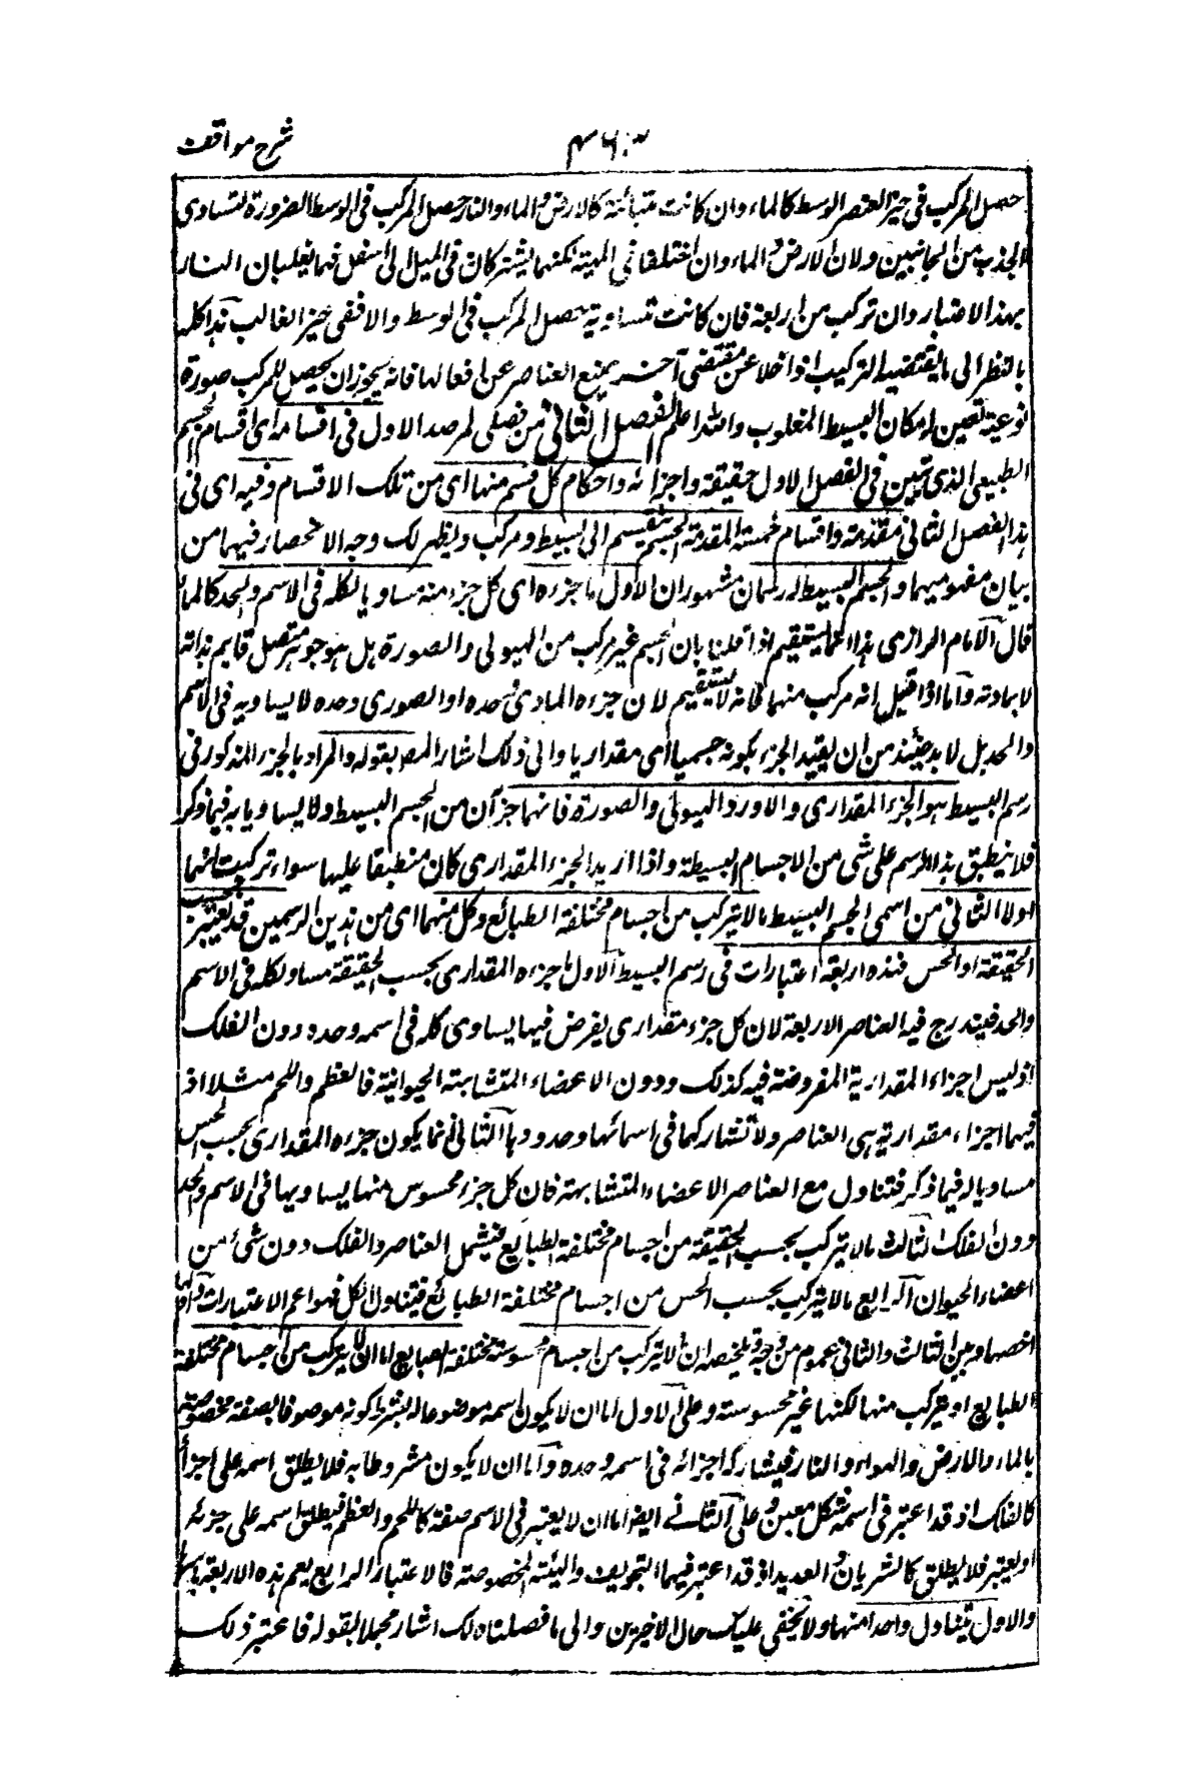 شرح مواقف
٤٦٠٢
حصل المركب فى حيز العنصر الوسط كالماء وان كانت متبائنة كالارض والماء والنار حصل المركب فى الوسط الضرورة لتساوى
الجذب من الجانبين ولان الارض والماء وان اختلفا فى المهية لكنهما يشتركان فى الميل الى اسفل فهما يغلبان النار
بهذا الاعتبار وان تركب من اربعة فان كانت متساوية حصل المركب فى الوسط والا ففى حيز الغالب هذا كله
بالنظر الى ما يقتضيه التركيب اذا خلا عن مقتضى آخر يمنع العناصر عن افعالها فانه يجوز ان يحصل للمركب صورة
نوعية تعين له مكان البسيط المغلوب والله اعلم الفصل الثانى من فصلى المرصد الاول فى اقسامه اى اقسام الجسم
الطبيعى الذى تبين فى الفصل الاول حقيقته واجزائه واحكام كل قسم منها اى من تلك الاقسام وفيه اى فى
هذا الفصل الثانى مقدمة واقسام خمسة المقدمة الجسم ينقسم الى بسيط ومركب وليظهر لك وجه الانحصار فيهما من
بيان مفهوميهما والجسم البسيط له رسمان مشهوران الاول ما جزءه اى كل جزء منه مساويا لكله فى الاسم والحد كالماء
قال الامام الرازى هذا انما يستقيم اذا قلنا بان الجسم غير مركب من الهيولى والصورة بل هو جوهر متصل قايم بذاته
لا بمادته واما اذا قيل انه مركب منهما فانه لا يستقيم لان جزءه المادى وحده او الصورى وحده لا يساويه فى الاسم
والحد بل لا بد حينئذ من ان يقيد الجزء بكونه جسميا اى مقداريا والى ذلك اشار المص بقوله والمراد بالجزء المذكور فى
رسم البسيط هو الجزء المقدارى والا ورد الهيولى والصورة فانهما جزآن من الجسم البسيط ولا يساويانه فيما ذكر
فلا ينطبق هذا الرسم على شى من الاجسام البسيطة واذا اريد الجزء المقدارى كان منطبقا عليها سواء تركبت منهما
او لا الثانى من اسمى الجسم البسيط ما لا يتركب من اجسام مختلفة الطبائع وكل منهما اى من هذين الرسمين قد يعتبر بحسب
الحقيقة او الحس فهذه اربعة اعتبارات فى رسم البسيط الاول ما جزءه المقدارى بحسب الحقيقة مساو لكله فى الاسم
والحد فيندرج فيه العناصر الاربعة لان كل جزء مقدارى يفرض فيها يساوى كله فى اسمه وحده دون الفلك
اذ ليس اجزاءه المقدارية المفروضة فيه كذلك ودون الاعضاء المتشابهة الحيوانية فالعظم واللحم مثلا اذ
فيهما اجزاء مقدارية هى العناصر ولا تشاركهما فى اسمائهما وحدودها الثانى ما يكون جزءه المقدارى بحسب الحس
مساويا له فيما ذكر فتناول مع العناصر الاعضاء المتشابهة فان كل جزء محسوس منها يساويها فى الاسم والحد
دون الفلك الثالث ما لا يتركب بحسب الحقيقة من اجسام مختلفة الطبايع فيشمل العناصر والفلك دون شئ من
اعضاء الحيوان الرابع ما لا يتركب بحسب الحس من اجسام مختلفة الطبائع فيتناول الكل فهو اعم الاعتبارات واولها
اخصها وبين الثالث والثانى عموم من وجه وتلخيصه ان ما لا يتركب من اجسام محسوسة مختلفة الطبايع اما ان لا يتركب من اجسام مختلفة
الطبايع او يتركب منها لكنها غير محسوسة وعلى الاول اما ان لا يكون اسمه موضوعا له بشرط كونه موصوفا بصفة مخصوصة
كالماء والارض والهواء والنار فيشاركه اجزائه فى اسمه وحده واما ان لا يكون مشروطا به فلا يطلق اسمه على اجزائه
كالفلك اذ قد اعتبر فى اسمه شكل معين وعلى الثانى ايضا اما ان لا يعتبر فى الاسم صفة كاللحم والعظم فيطلق اسمه على جزئه
او يعتبر فلا يطلق كالشريان والوريد اذ قد اعتبر فيهما التجويف والهيئة المخصوصة فالاعتبار الرابع يعم هذه الاربعة باسرها
والاول يتناول واحدا منها ولا يخفى عليك حال الاخيرين والى ما فصلناه لك اشار مجملا بقوله فاعتبر ذلك